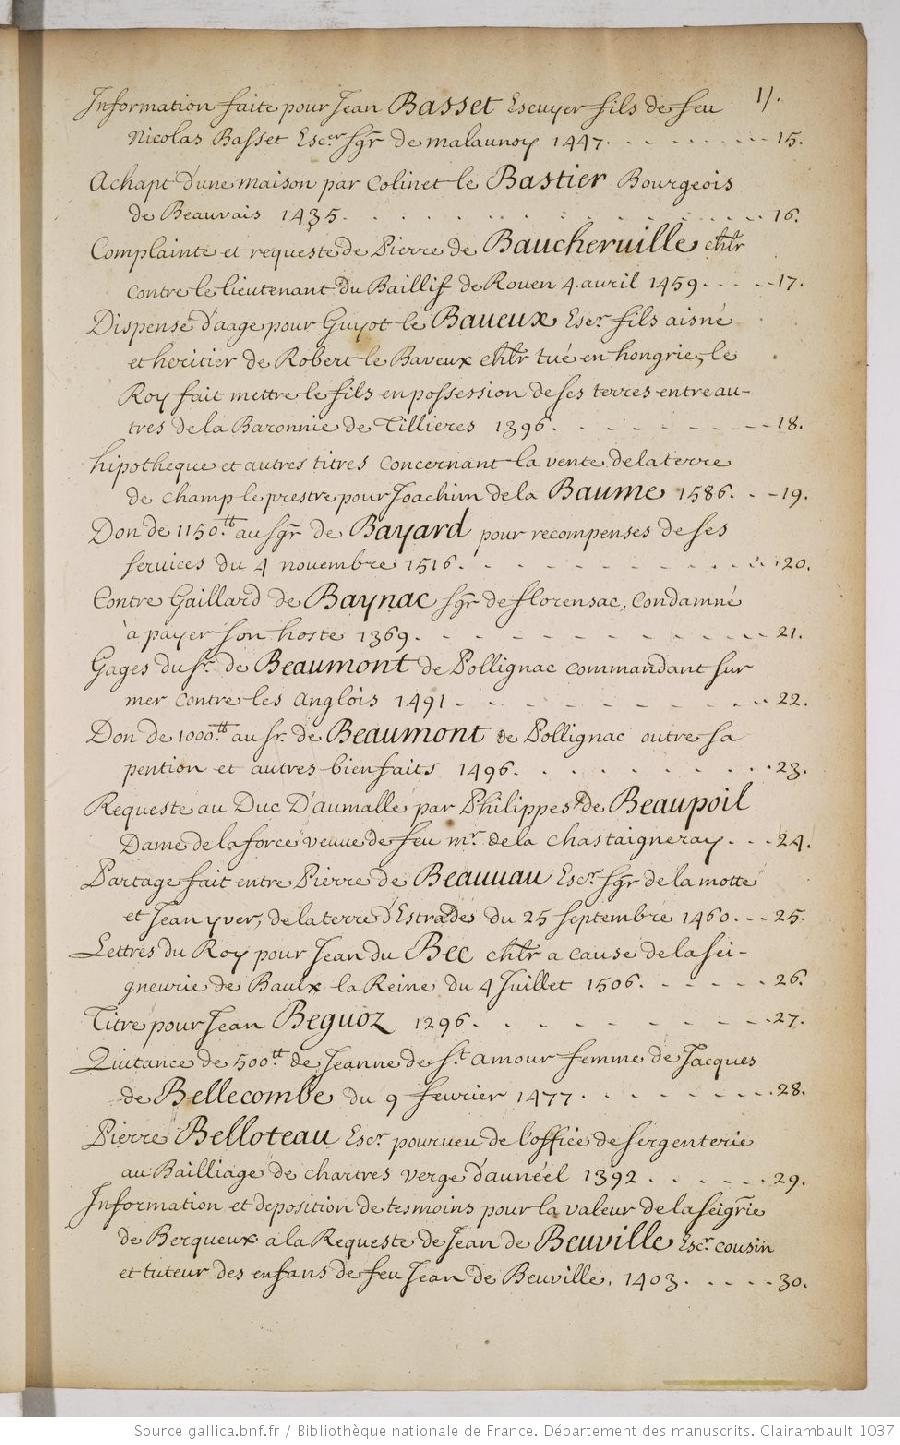 11.
Information faite pour Jean Basset Escuyer fils de feu
Nicolas Basset Escer sgr de malaunoy 1447. 15.
Achapt d'une maison par Colinet le Bastier Bourgeois
de Beauvais 1435. 16.
Complainte et requeste de Pierre de Baucheruille chlr
contre le lieutenant du Baillif de Rouen 4 avril 1459. 17.
Dispense d'aage pour Guyot le Baueux Escr fils aisné
et heritier de Robert le Baveux chlr tué en hongrie, le
Roy fait mettre le fils en possession de ses terres entre au-
tres de la Baronnie de Tillieres 1396. 18.
hipotheque et autres titres concernant la vente de la terre
de champ le prestre pour Joachim de la Baume 1586. 19.
Don de 1150.tt au sgr de Bayard pour recompenses de ses
seruices du 4 novembre 1516. 20.
Contre Gaillard de Baynac sgr de florensac, Condamné
à payer son hoste 1369. 21.
Gages du sr. de Beaumont de Pollignac commandant sur
mer contre les Anglois 1491. 22.
Don de 1000.tt au sr. de Beaumont de Pollignac outre sa
pention et autres bienfaits 1496. 23.
Requeste au Duc D'aumalle par Philippes de Beaupoil
Dame de la force veuue de feu mr. de la Chastaigneray. 24.
Partage fait entre Pierre de Beauuau Escr. sgr de la motte
et Jean yver, de la terre d'Estrades du 25 septembre 1460. 25.
Lettres du Roy pour Jean du Bec chlr a cause de la sei-
gneurie de Baulx la Reine du 4 Juillet 1506. 26.
Titre pour Jean Beguoz 1296. 27.
Quitance de 500.tt de Jeanne de St. amour femme de Jacques
de Bellecombe du 9 feurier 1477. 28.
Pierre Belloteau Escr. pourueu de l'office de sergenterie
au Bailliage de chartres verge d'aunéel 1392. 29.
Information et deposition de tesmoins pour la valeur de la seigrie
de Berqueux a la Requeste de Jean de Beuville Escr. cousin
et tuteur des enfans de feu Jean de Beuville, 1403. 30.
Source gallica.bnf.fr / Bibliothèque nationale de France. Département des manuscrits. Clairambault 1037